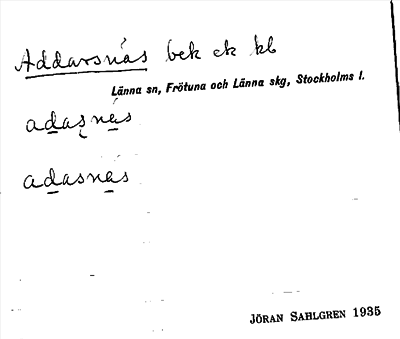 Addarsnäs bek ek kb
Länna sn, Frötuna och Länna skg, Stockholms l.
adasnás
adasnas
JÖRAN SAHLGREN 1935